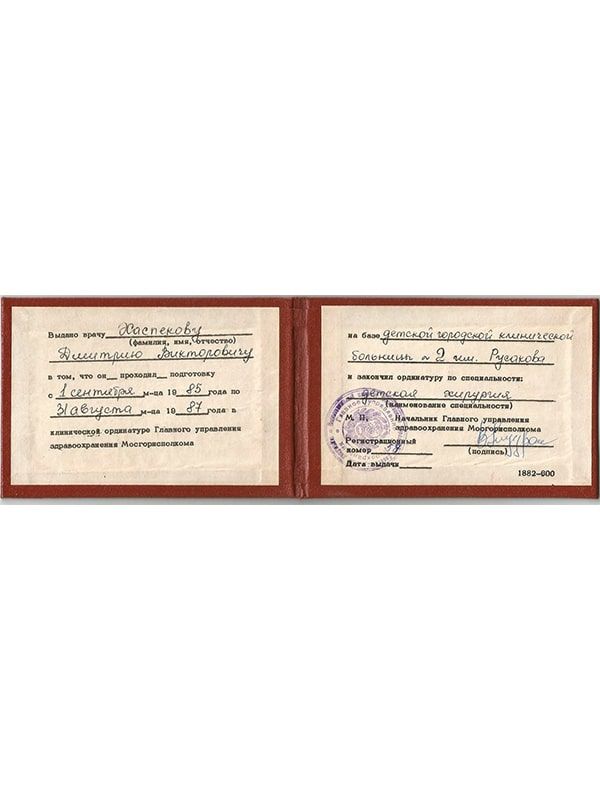 Выдано врачу Хаспекову
(фамилия, имя, отчество)
Дмитрию Викторовичу
в том, что он__ проходил__ подготовку
с 1 сентября м-ца 19 85 года по
31 августа м-ца 19 87 года в
клинической ординатуре Главного управления
здравоохранения Мосгорисполкома
на базе детской городской клинической
больницы № 2 им. Русакова
и закончил ординатуру по специальности:
детская хирургия
(наименование специальности)
М. П. Начальник Главного управления
здравоохранения Мосгорисполкома
Регистрационный
номер
(подпись)
Дата выдачи
1882—600